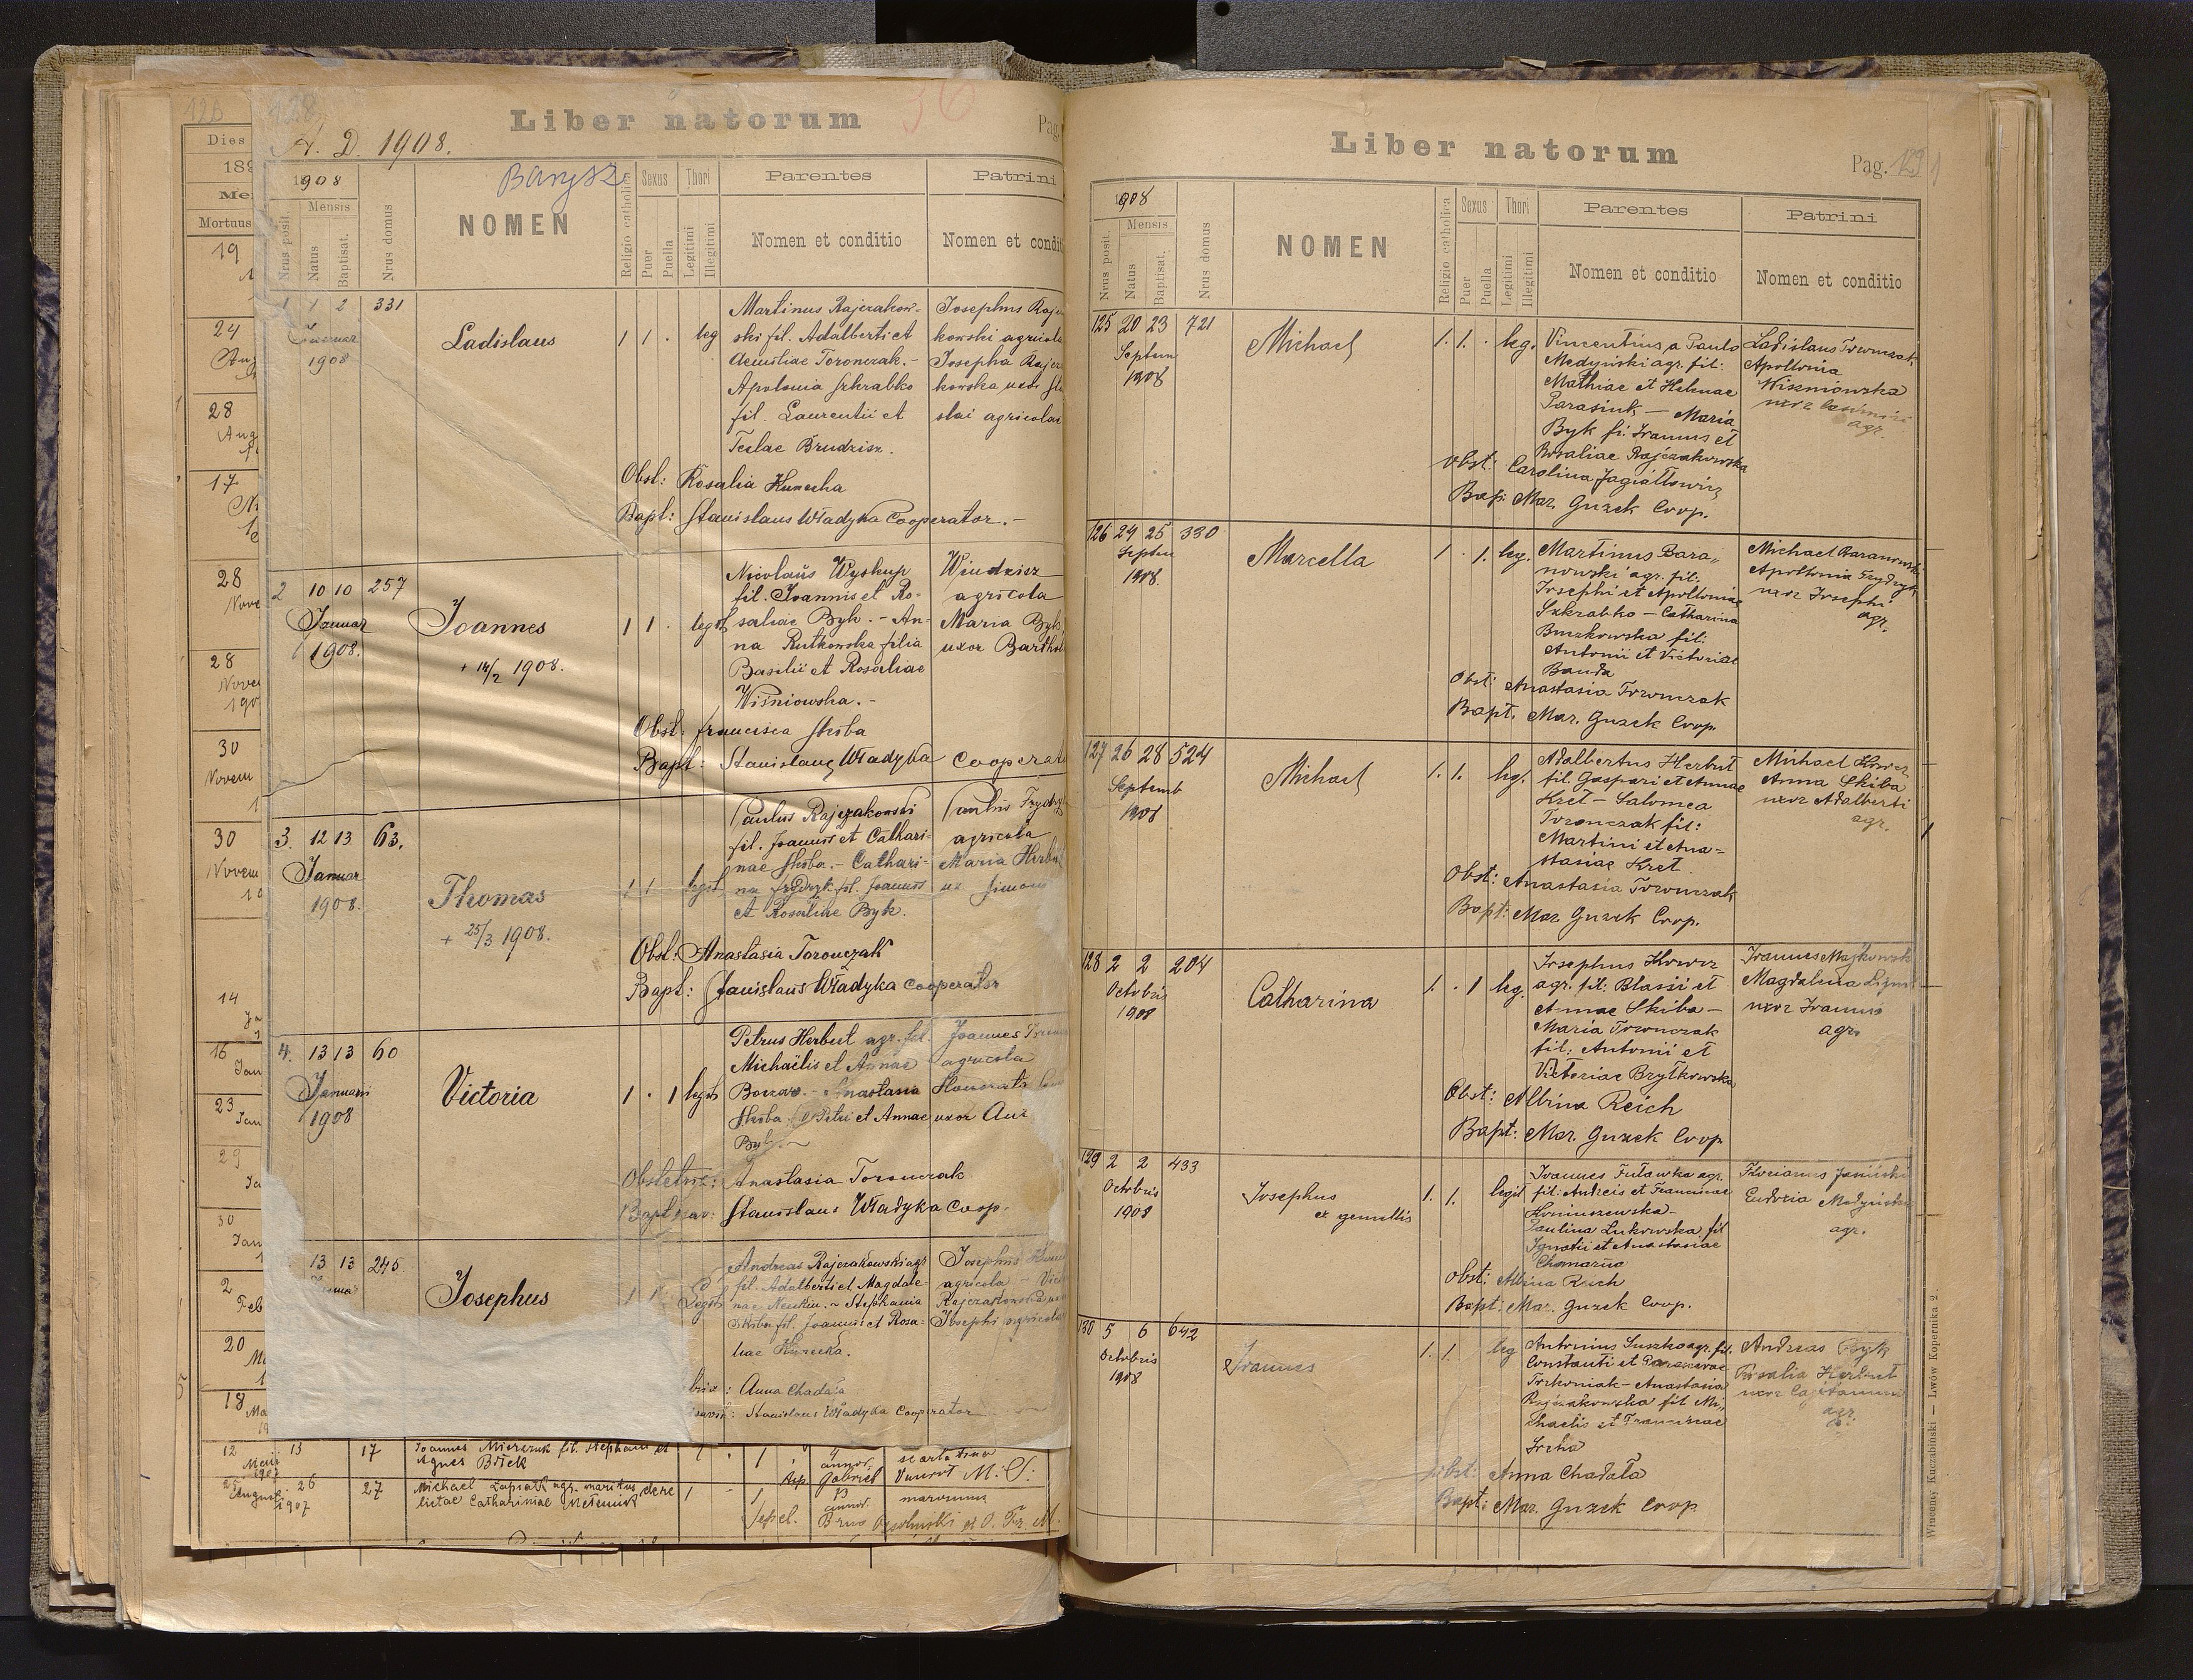 126
Dies
189
Mortuus
19
24
Aug
28
Aug
17
28
Nove
28
Nove
190
30
Novem
30
Novem
14
16
Jan
23
Jan
29
30
Jan
2
Feb
20
18
128
Liber natorum
36
Pag.
A. D. 1908.
Barysz
1908
Mensis
Nrus posit.
Natus
Baptisat.
Nrus domus
NOMEN
Religio catholica
Sexus
Puer
Puella
Thori
Legitimi
Illegitimi
Parentes
Nomen et conditio
Patrini
Nomen et condit
1 1 2 331
Januar
1908
Ladislaus
1 1 . leg
Martinus Rajczakow-
ski fil. Adalberti et
Aemiliae Toronczak.-
Apolonia Szkrabko
fil. Laurentii et
Teclae Brudzisz.
Josephus Raj
kowski agricola
Josepha Rajcz
kowska uxor
slai agricolae
Obst: Rosalia Kunecka
Bapt: Stanislaus Władyka Cooperator.-
2 10 10 257
Januar
1908.
Joannes
+ 14/2 1908.
1 1 . legit
Nicolaus Wyskup
fil. Joannis et Ro-
saliae Byk.- An-
na Rutkowska filia
Basilii et Rosaliae
Wiśniowska.-
agricola
Maria Byk
uxor Barthol
Obst: Francisca Skiba
Bapt: Stanislaus Władyka Cooperat
3. 12 13 63.
Januar
1908.
Thomas
+ 25/3 1908.
1 1 legit
Paulus Rajczakowski
fil. Joannis et Cathari-
nae Skiba.- Cathari-
na Frydryk fil. Joannis
et Rosaliae Byk.
Paulus Frydry
agricola
Maria Herbut
ux Simonis
Obst: Anastasia Toronczak
Bapt: Stanislaus Władyka Cooperator
4. 13 13 60
Januarii
1908
Victoria
1 . 1 legit
Petrus Herbut agr. fil.
Michaëlis et Annae
Boczar.- Anastasia
Skiba fil Petri et Annae
Byk.
Joannes
agricola
uxor
Obstetrix: Anastasia Toronczak
Baptisav: Stanislaus Władyka Coop.
13 13 245.
Josephus
1 1 Legit
Andreas Rajczakowski agr
fil. Adalberti et Magdale-
nae .~ Stephania
Skiba fil. Joannis et Rosa-
liae Kunecka.
Josephus
agricola - Vic
Rajczakowska
Josephi agricola
brix: Anna Chadała
isavit: Stanislaus Władyka Cooperator
12 13 17
Maii
1907
Joannes Mierzuk fil. Stephani et
Agnes Bilek
1 . 1
4
annor.
Gabriel
scarlatina
25 26 27
August.
1907
Michael agr. maritus dere
lictae Catharinae
1
Sepel.
73
annor.
marasmus
Liber natorum
Pag. 129
1908
Mensis
Nrus posit.
Natus
Baptisat.
Nrus domus
NOMEN
Religio catholica
Sexus
Puer
Puella
Thori
Legitimi
Illegitimi
Parentes
Nomen et conditio
Patrini
Nomen et conditio
125 20 23 721
Septem
1908
Michael
1. 1. . leg.
Vincentius a Paulo
Medyński agr. fil:
Mathiae et Helenae
Parasiuk — Maria
Byk fi. Joannis et
Rosaliae Rajczakowska
Ladislaus Toronczak
Apollonia
Wiszniowska
uxor Casimiri
agr.
Obst: Carolina Jagiałłowicz
Bap: Mar. Guzek Coop.
126 24 25 330
Septem
1908.
Marcella
1 . 1. leg.
Martinus Bara„
nowski agr. fil:
Josephi et Apolloniae
Szkrabko — Catharina
Buszkowska fil:
Antonii et Victoriae
Banda
Michael Baranowski
Apollonia Frydryk
uxor Josephi
agr.
Obst: Anastasia Toronczak
Bapt. Mar. Guzek Coop.
127 26 28 524
Septemb
1908
Michael
1. 1. leg.
Adalbertus Herbut
fil. Gaspari et Annae
Kret — Salomea
Toronczak fil:
Martini et Ana=
stasiae Kret
Michael Kowcz
Anna Skiba
uxor Adalberti
agr.
Obst: Anastasia Toronczak
Bapt: Mar. Guzek Coop.
128 2 2 204
Octobris
1908
Catharina
1. . 1 leg.
Josephus Kowcz
agr. fil: Blasii et
Annae Skiba —
Maria Toronczak
fil: Antonii et
Victoriae Brytkowska
Joannes Majkowsk
Magdalena
uxor Joannis
agr.
Obst: Albina Reich
Bapt: Mar. Guzek Coop
129 2 2 433
Octobris
1908
Josephus
ex gemellis
1. 1. legit
Joannes Futawka agr.
fil: Andreis et Franciscae
Koniuszewska-
Paulina Lukowska fil
Ignatii et Anastasiae
Chomaria
Florianus Jasiński
Eudoxia Medyńska
agr.
Obst: Albina Reich
Bapt: Mar. Guzek Coop.
130 5 6 642
Octobris
1908
Joannes
1. 1. leg
Antonius Suszko agr. fil.
Constanti et Parascevae
Trzkoniak — Anastasia
Rajczakowska fil Mi,
chaelis et Franciscae
Socha
Andreas Byk
Rosalia Herbut
uxor Cajetanni
agr.
Obst: Anna Chadała
Bapt: Mar. Guzek Coop
Wincenty Kuczabiński — Lwów Kopernika 2.